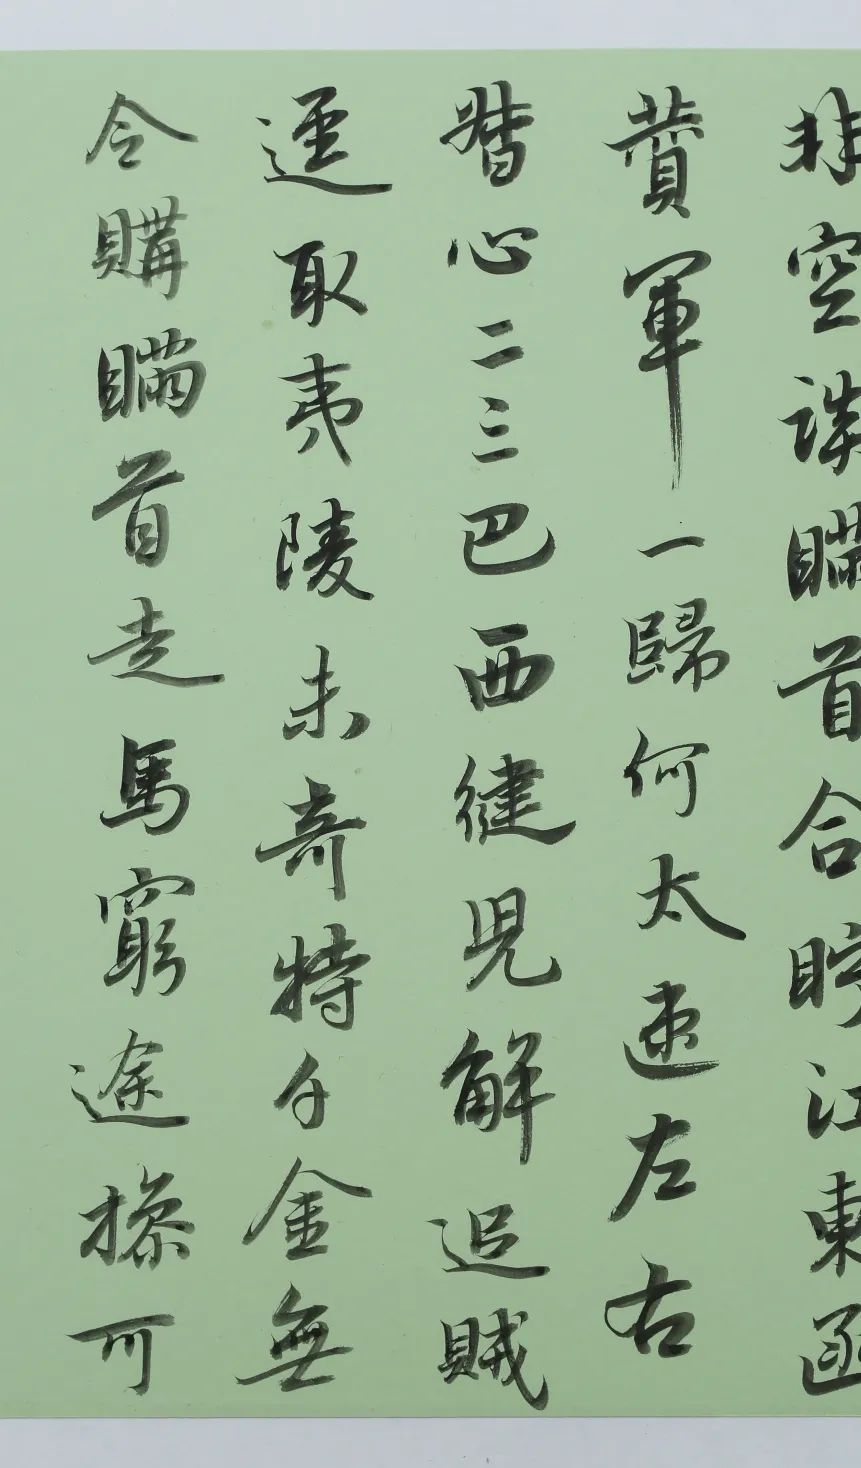 非空談瞞首合貯江東函
賁軍一歸何太速左右
替心二三巴西健兒解追賊
逕取夷陵未奇特千金無
令購瞞首走馬窮途操可